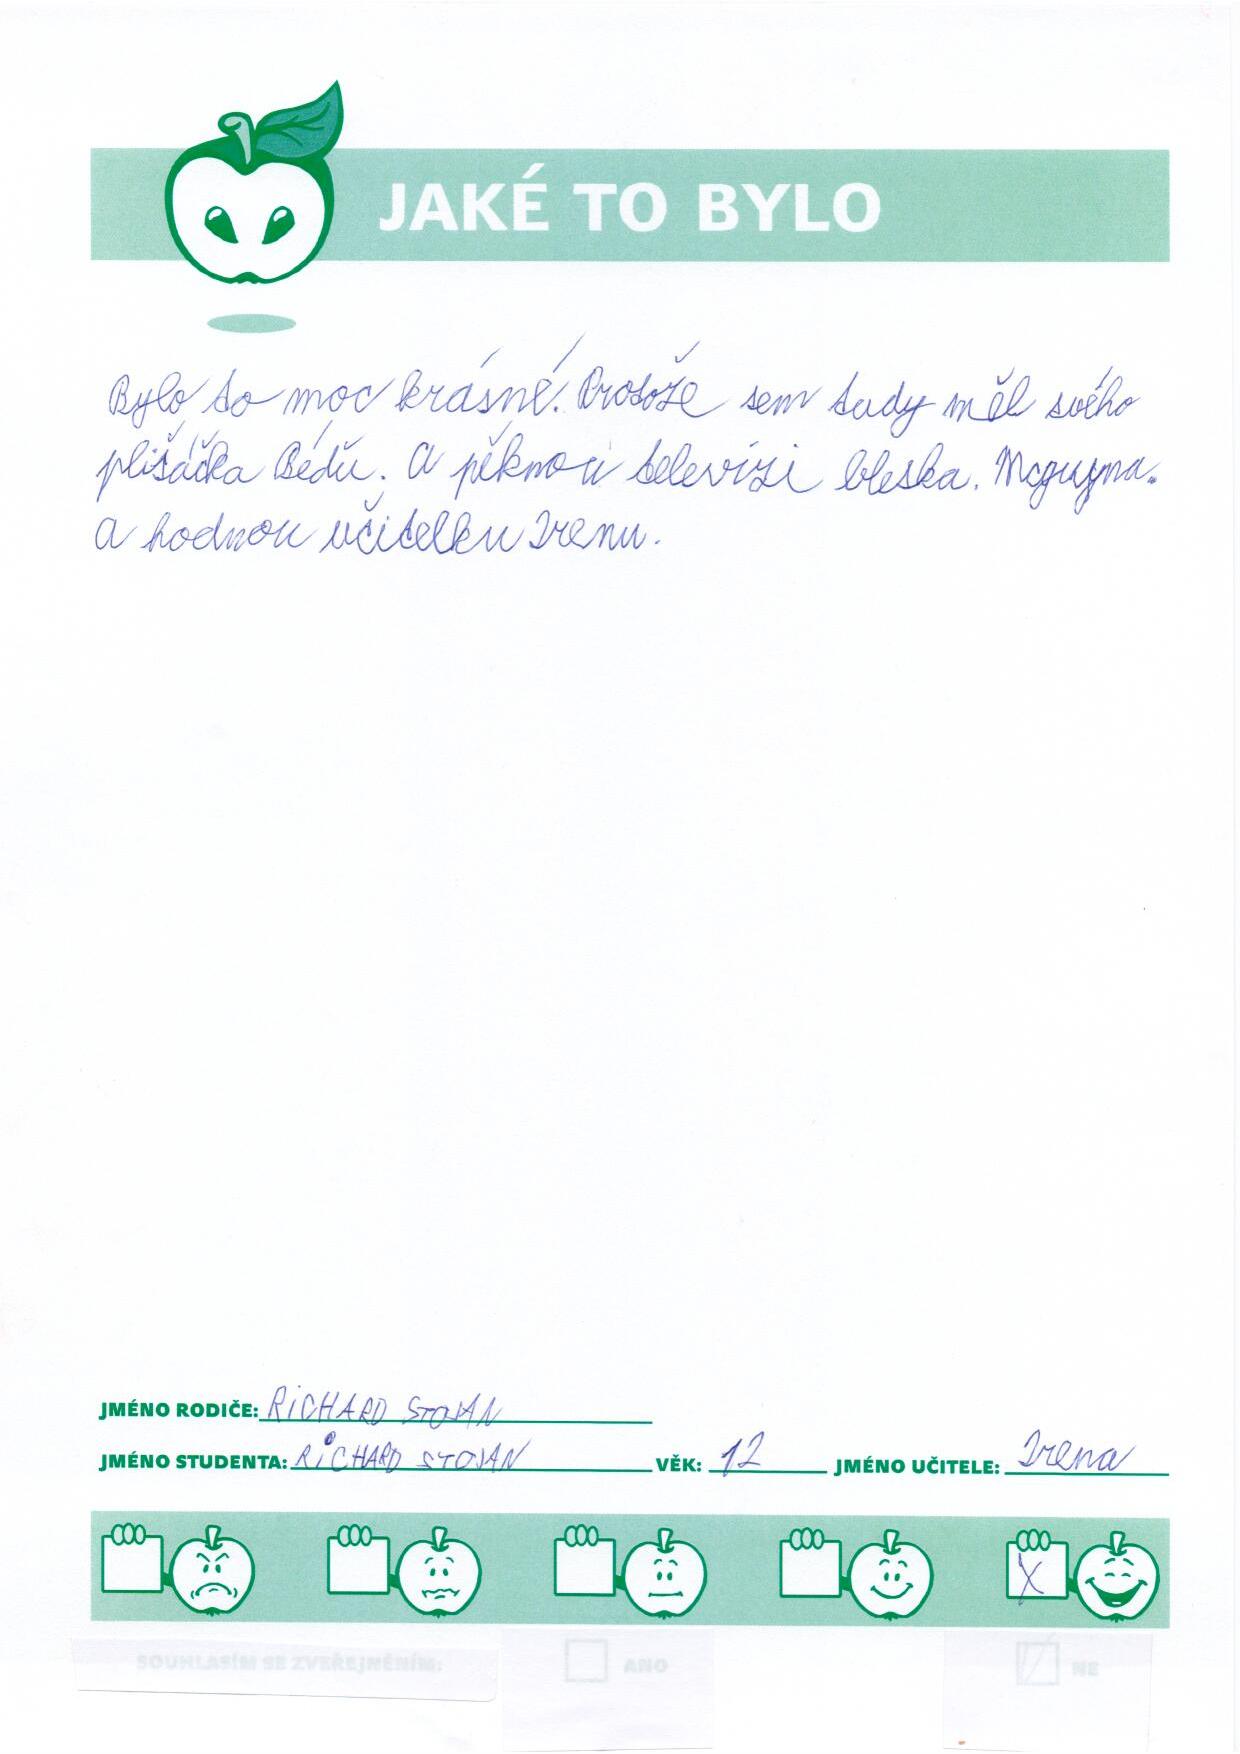 JAKÉ TO BYLO
Bylo to moc krásné. Protože sem tady měl svého
plišáčka Bédu. A pěknou televizi bleska. Mcqueena.
A hodnou učitelku Irenu.
JMÉNO RODIČE: RICHARD STOJAN
JMÉNO STUDENTA: RICHARD STOJAN VĚK: 12 JMÉNO UČITELE: Irena
X
SOUHLASÍM SE ZVEŘEJNĚNÍM: ANO NE